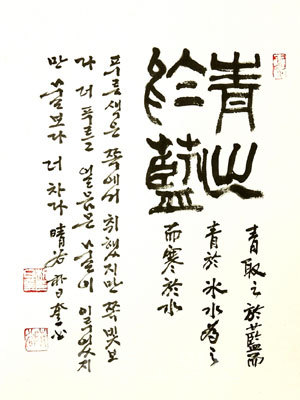 青出
於藍
青取之於藍而
青於冰水為之
而寒於水
푸른색은 쪽에서 취했지만 쪽빛보
다 더 얼음은 물이 이루었지
만 물보다 더 차다